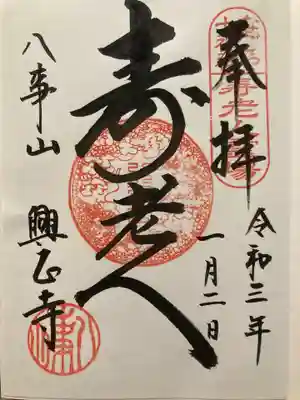 奉拝
令和三年
一月二日
寿老人
八事山
興正寺